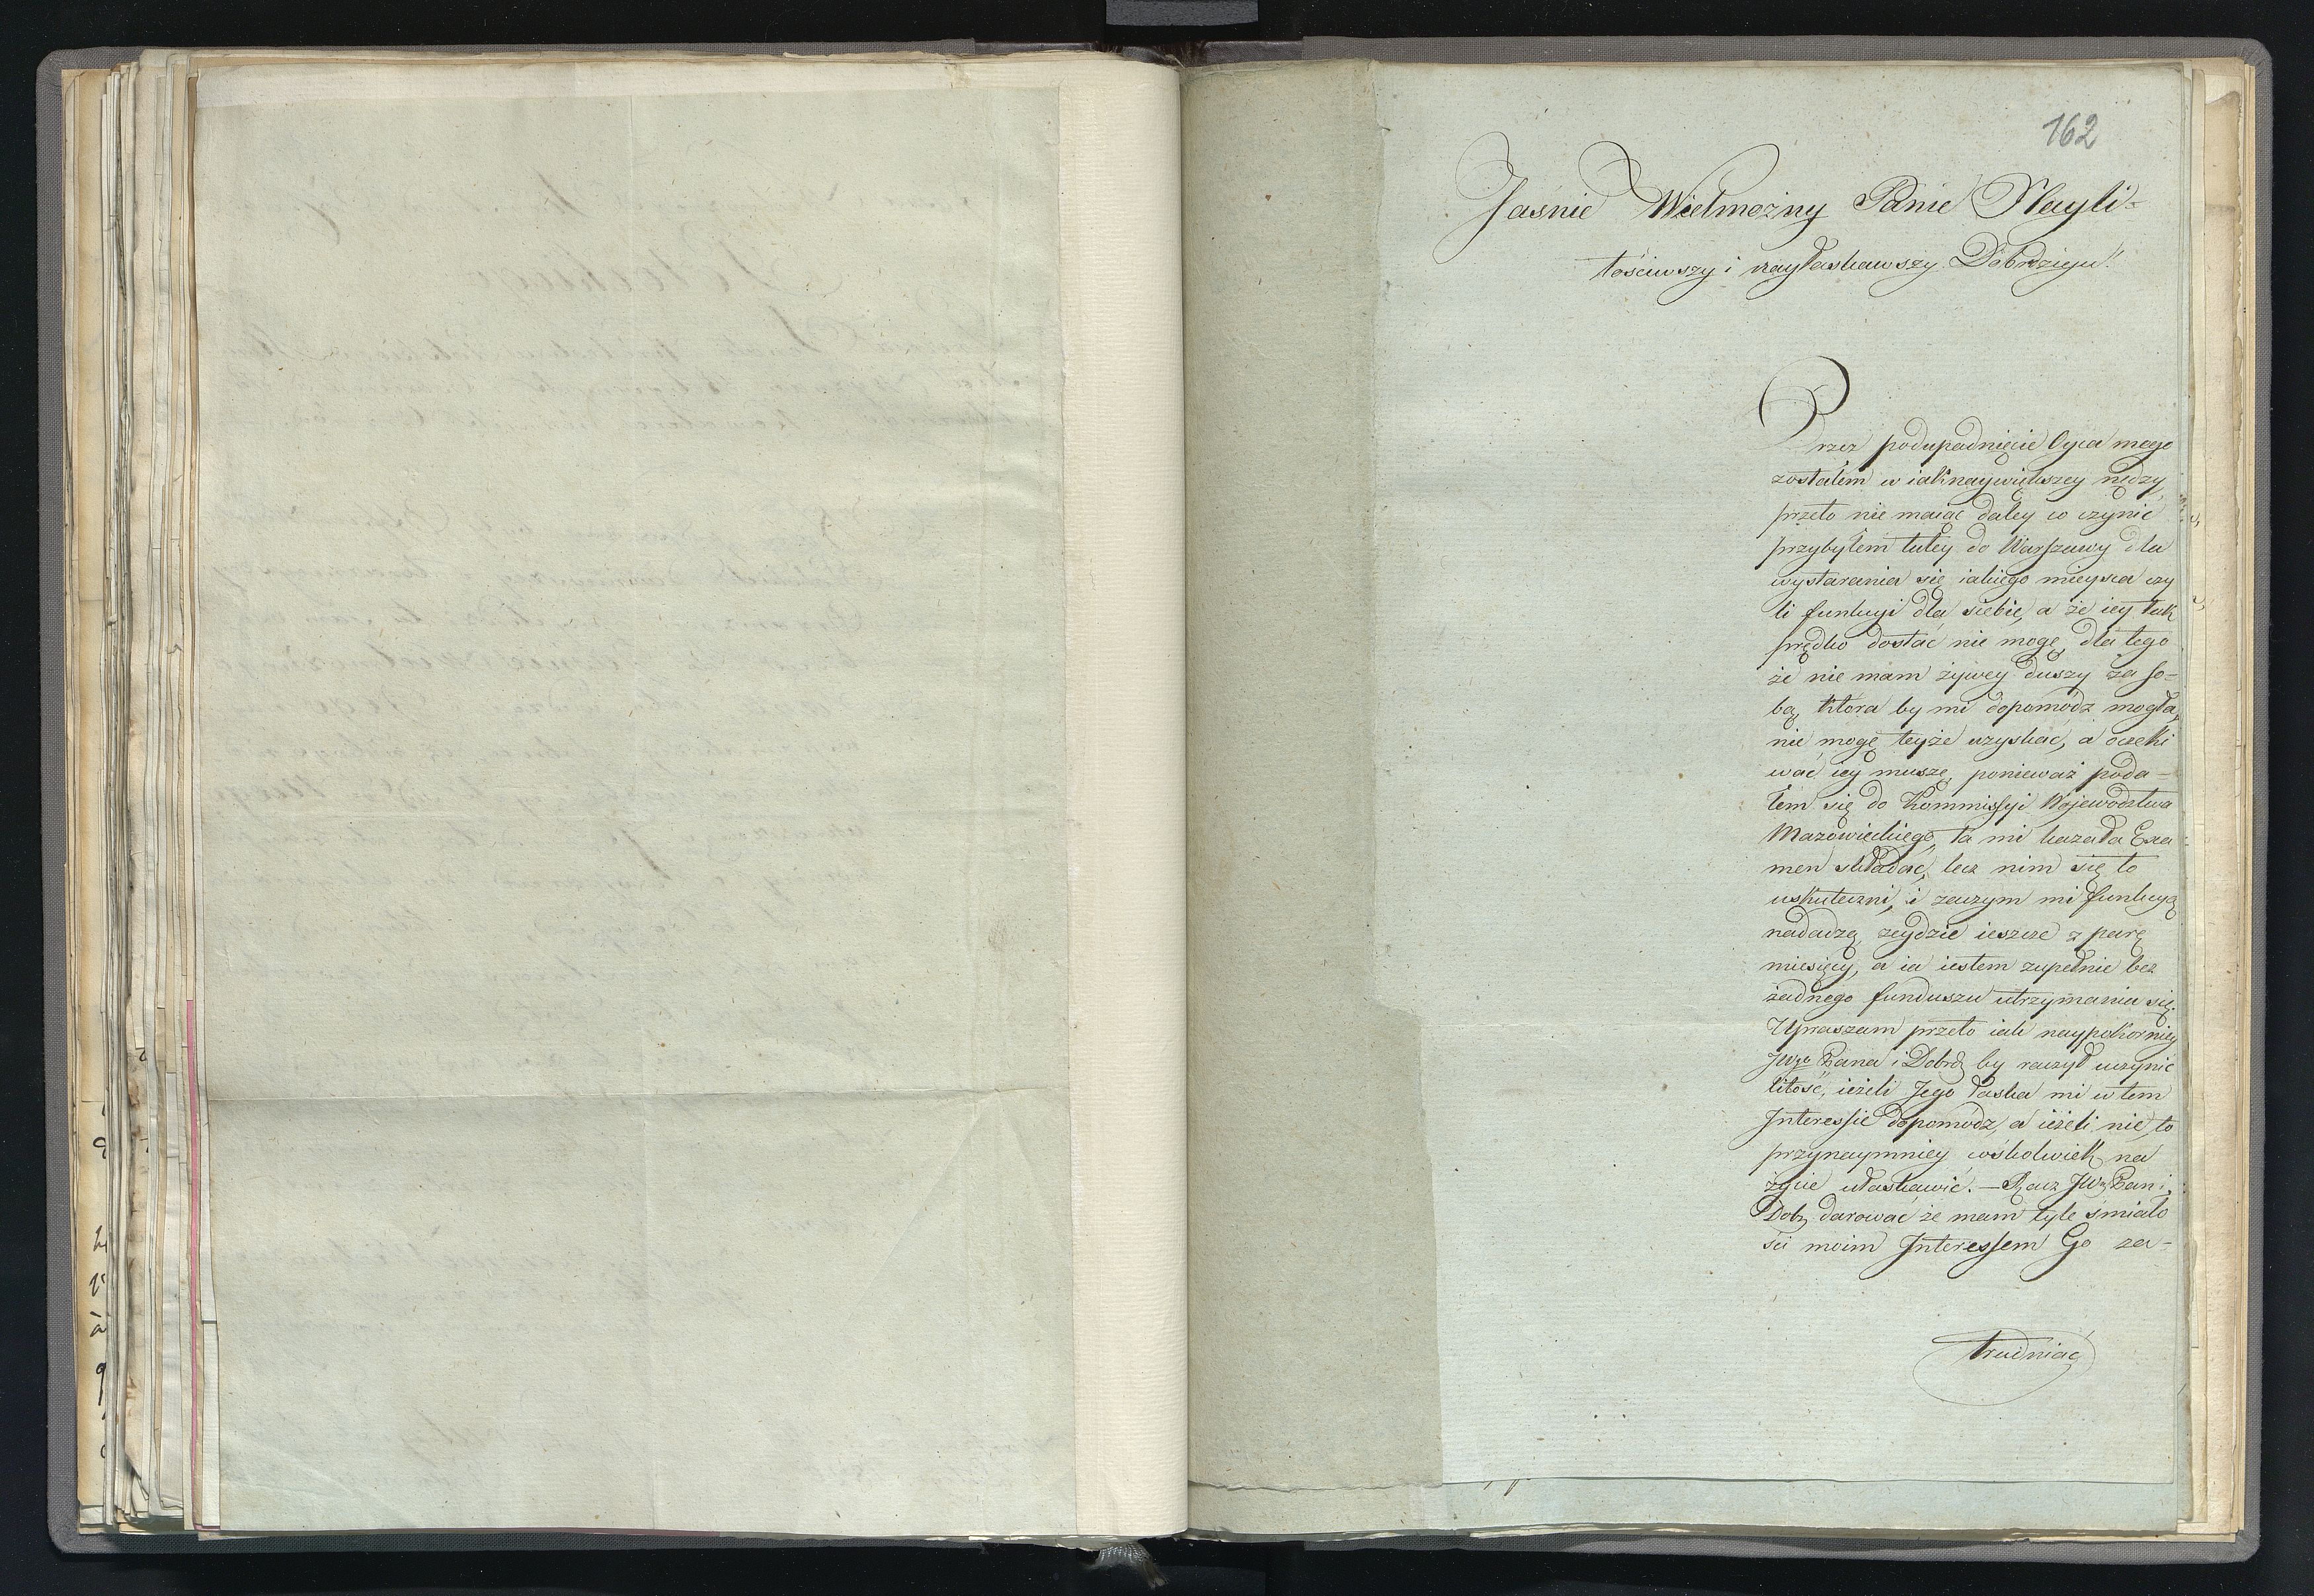 162
Jaśnie Wielmożny Panie Nayli-
tościwszy i nayłaskawszy Dobrdzieju!
Przez podupadnięcie Oyca mego
zostałem w iaknaywiększey nędzy,
przeto nie maiąc daley co czynić
przybyłem tutey do Warszawy dla
wystarania się iakiego mieysca czy
li funkcyi dla siebie, a że iey tak
prędko dostać nie mogę, dla tego
że nie mam żywey duszy za so-
bą, która by mi dopomódz mogła,
nie mogę teyże uzyskać, a oczeki
wać iey muszę, ponieważ poda-
łem się do Kommissyi Wojewodztwa
Mazowieckiego, ta mi kazała Exa
men składać, lecz nim się to
uskuteczni, i zaczym mi funkcyą
nadadzą, zeydzie ieszcze z parę
miesięcy, a ia iestem zupełnie bez
żadnego funduszu utrzymania się.
Upraszam przeto iak naypokorniey
JWgo Pana i Dobrdz by raczył uczynić
litość, ieżeli Jego łaska mi w tem
Interessie dopomodz, a ieżeli nie, to
przynaymniey cośkolwiek na
życie ułaskawić. — Racz JW Pan i
Dob. darować że mam tyle śmiało
ści moim Interessem Go za-
trudniać